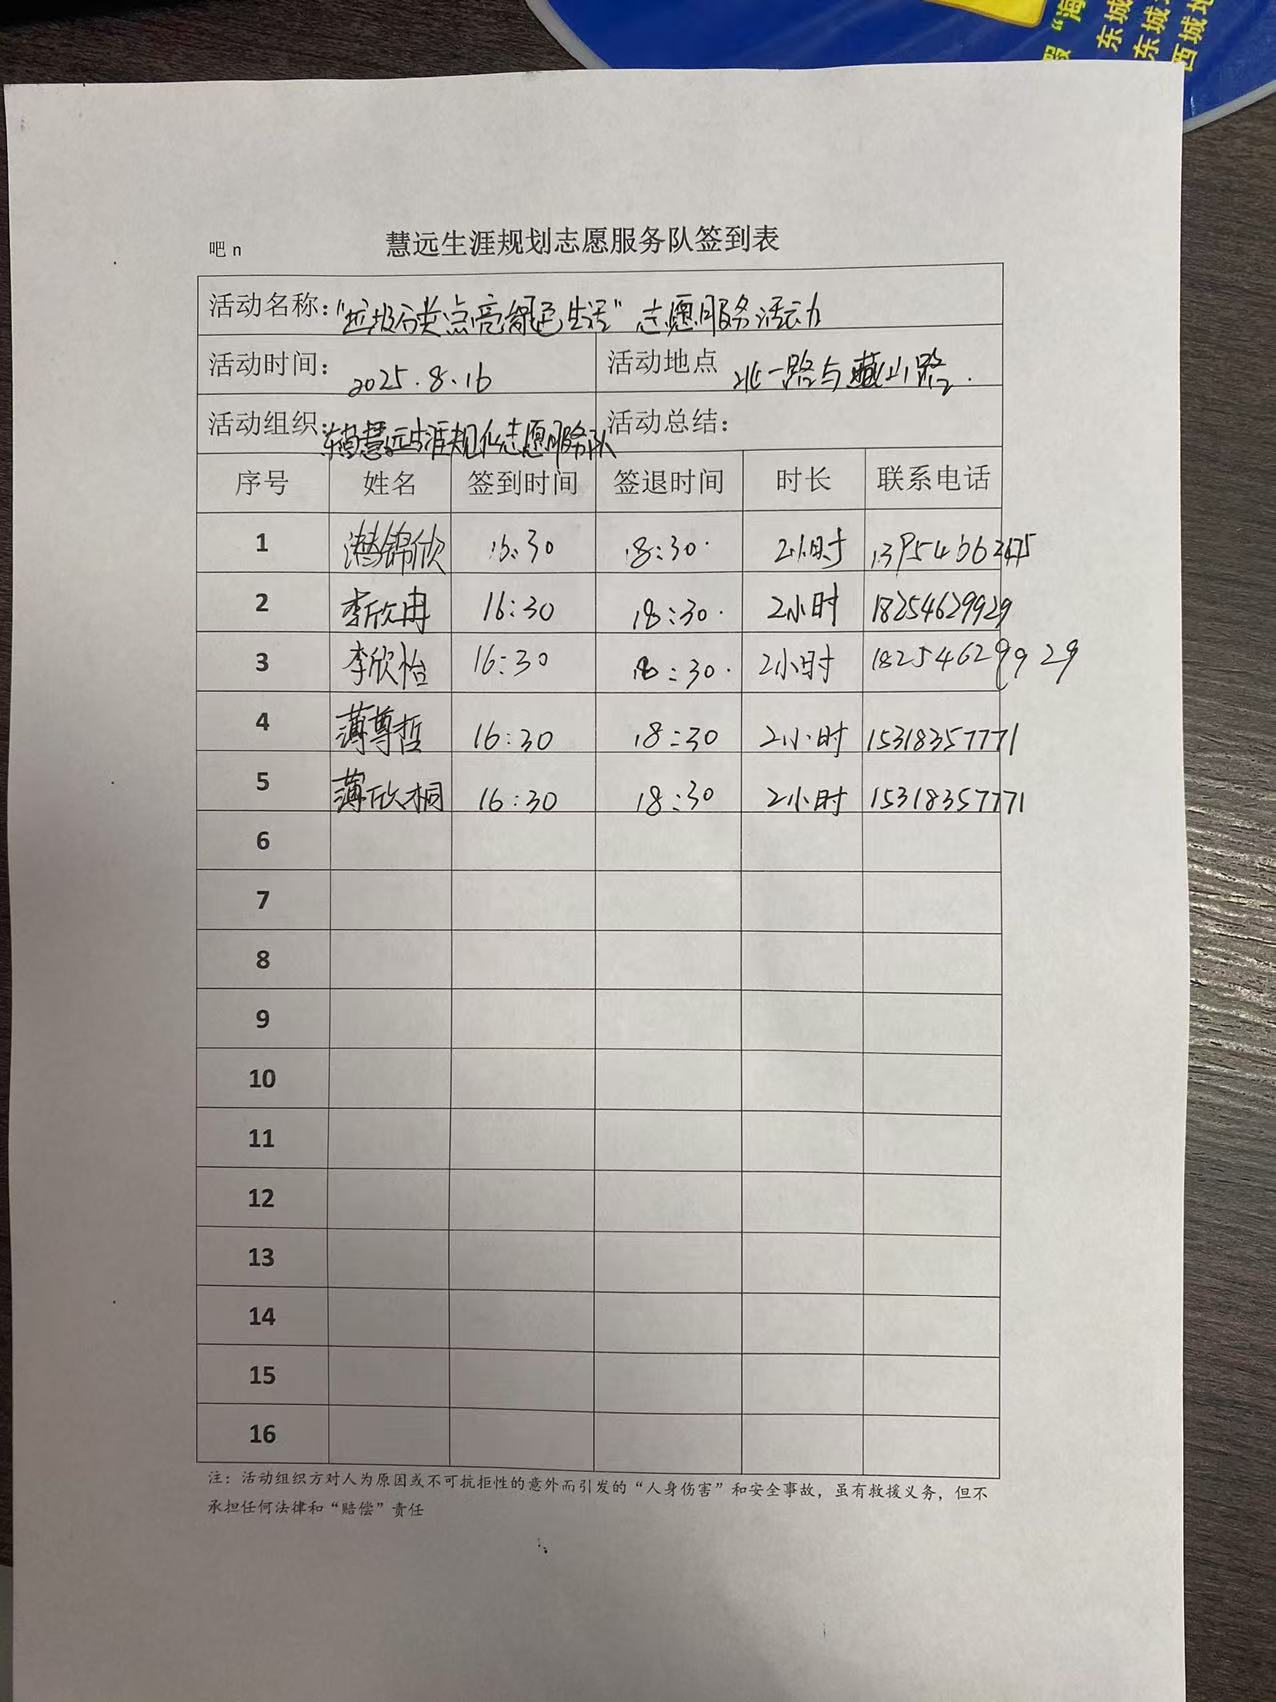 "海
东城
东城
西城地
吧 n
慧远生涯规划志愿服务队签到表
活动名称："垃圾分类点亮绿色生活"志愿服务活动
活动时间： 2025.8.16 活动地点 北一路与藏山路.
活动组织： 慧远生涯规划志愿服务队 活动总结：
序号 姓名 签到时间 签退时间 时长 联系电话
1 锦欣 16:30 18:30 2小时
2 李欣冉 16:30 18:30 2小时 18254629929
3 李欣怡 16:30 18:30 2小时 18254629929
4 薄尊哲 16:30 18:30 2小时 15318357771
5 薄欣桐 16:30 18:30 2小时 15318357771
6
7
8
9
10
11
12
13
14
15
16
注：活动组织方对人为原因或不可抗拒性的意外而引发的“人身伤害”和安全事故，虽有救援义务，但不
承担任何法律和“赔偿”责任